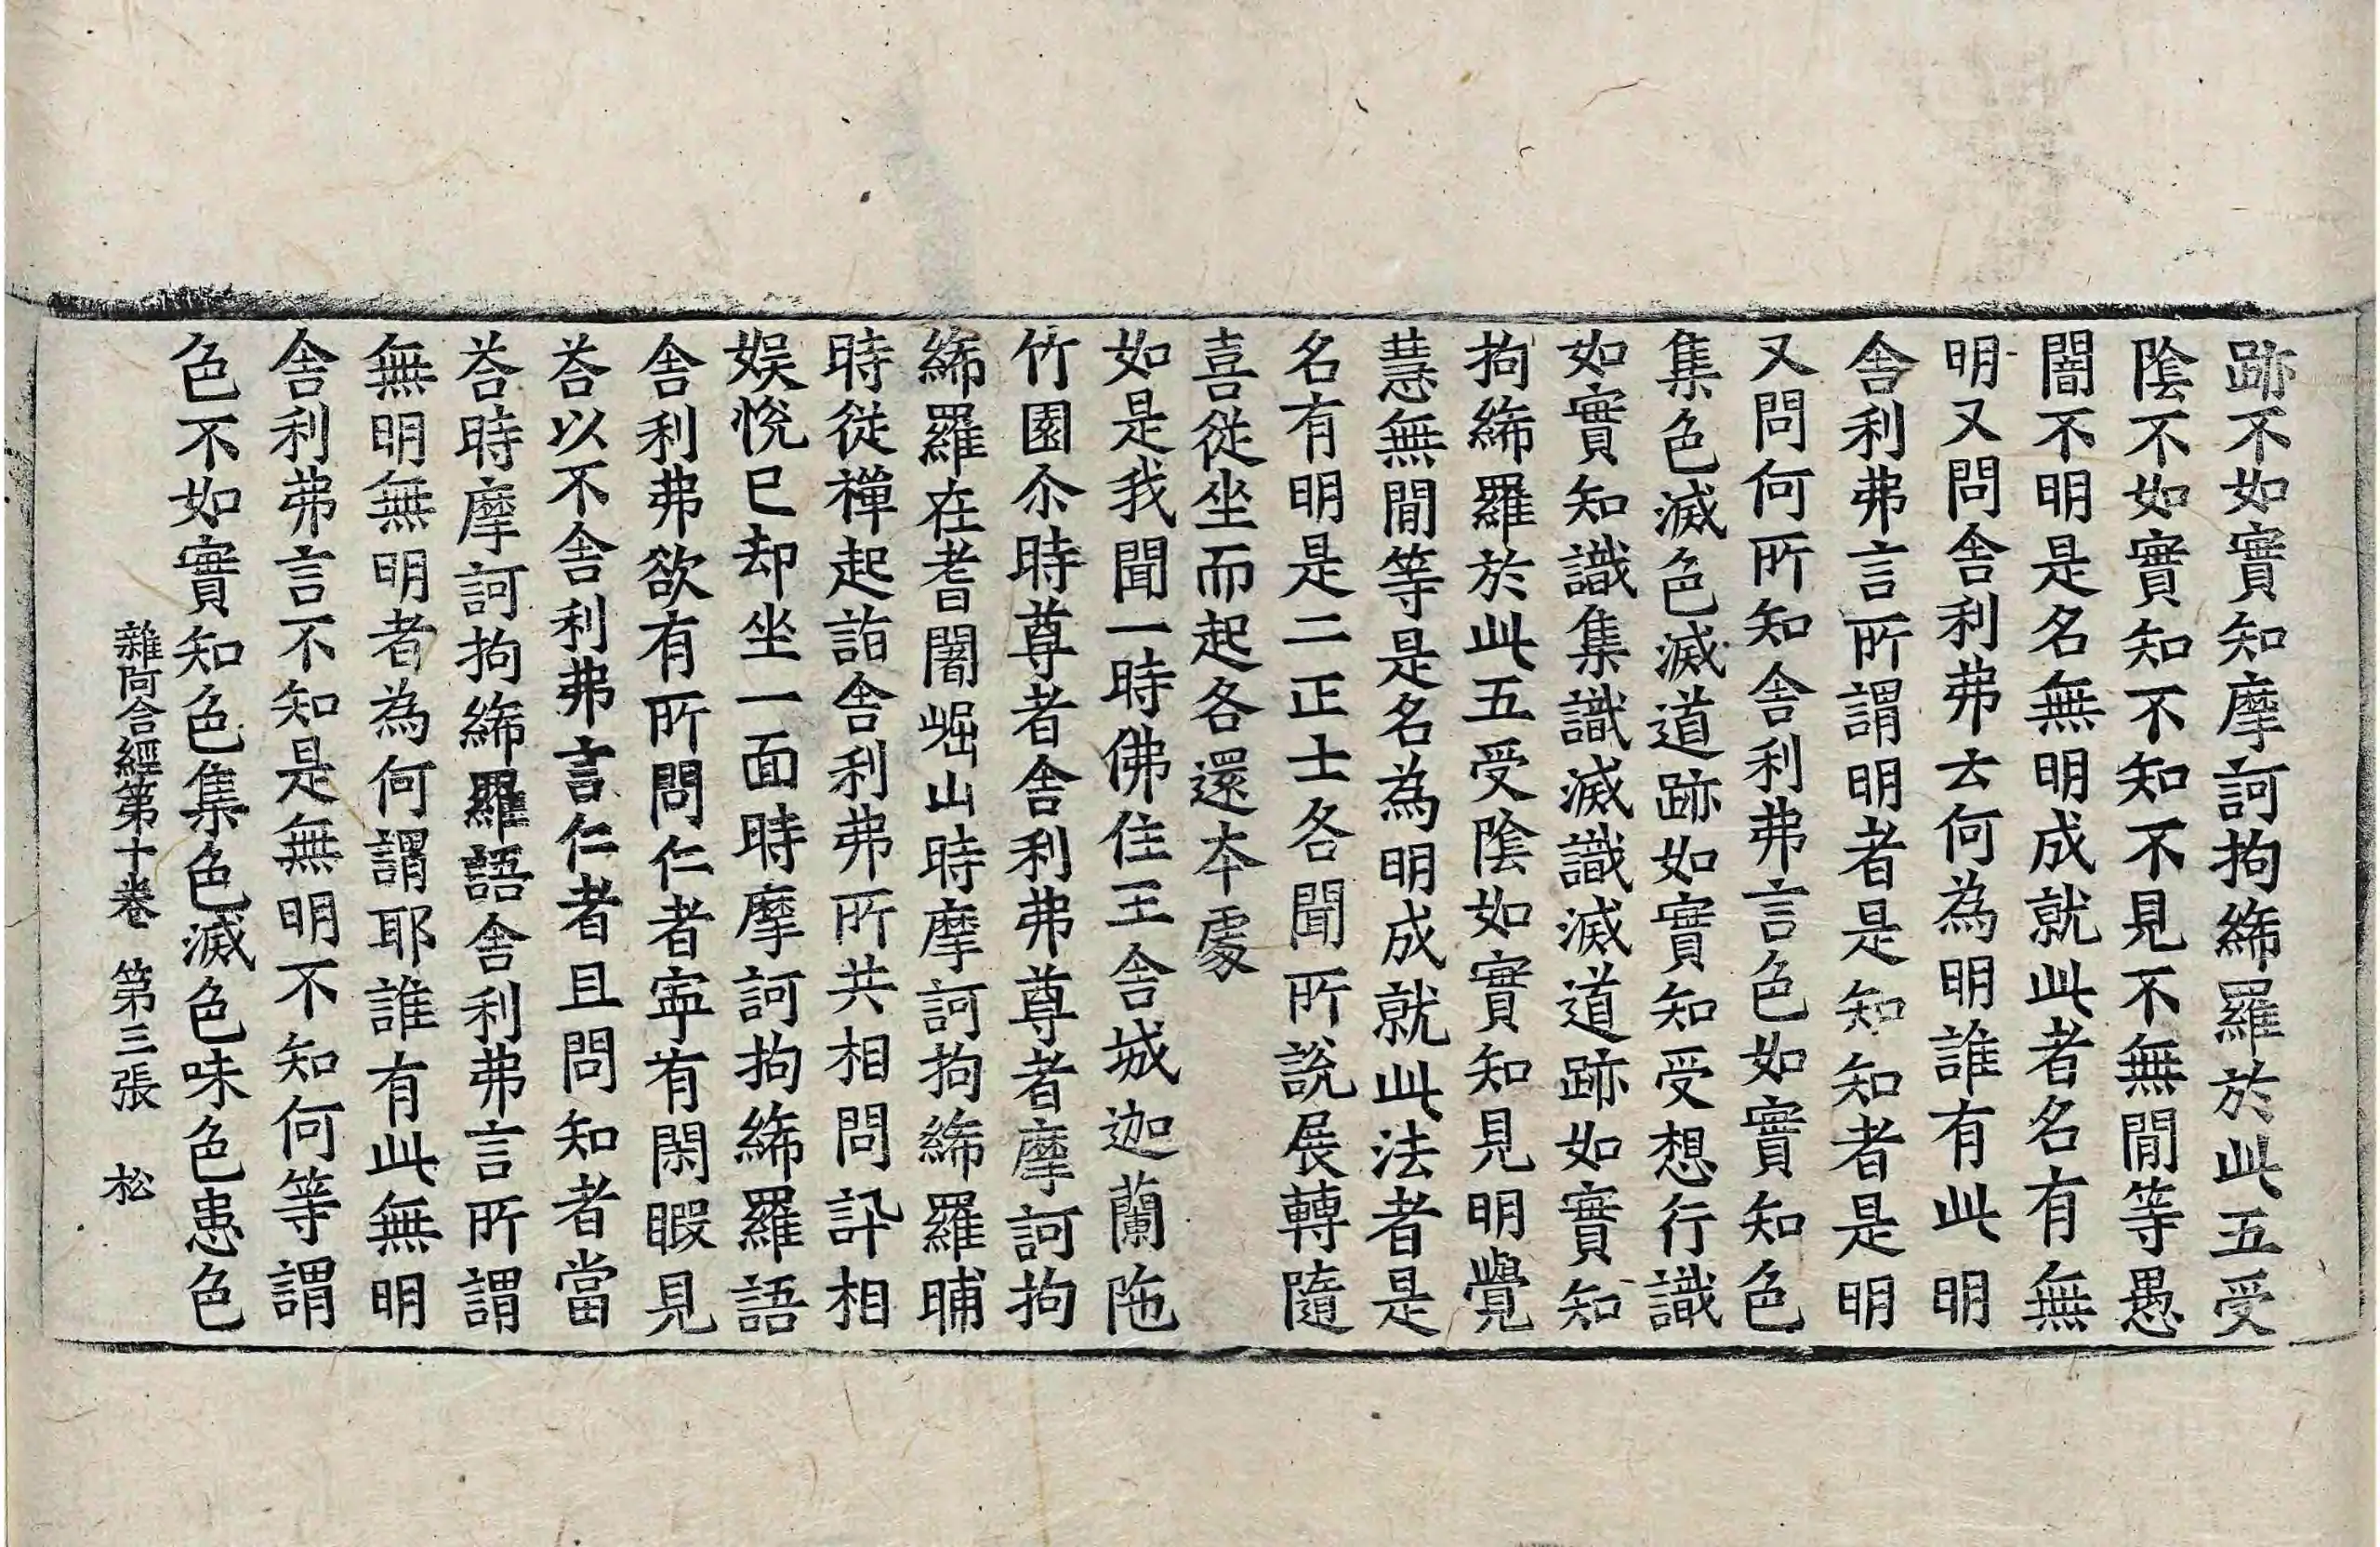 跡不如實知摩訶拘絺羅於此五受
陰不如實知不知不見不無閒等愚
闇不明是名無明成就此者名有無
明又問舍利弗云何為明誰有此明
舍利弗言所謂明者是知知者是明
又問何所知舍利弗言色如實知色
集色滅色滅道跡如實知受想行識
如實知識集識滅識滅道跡如實知
拘絺羅於此五受陰如實知見明覺
慧無閒等是名為明成就此法者是
名有明是二正士各聞所說展轉隨
喜從坐而起各還本處
如是我聞一時佛住王舍城迦蘭陁
竹園尒時尊者舍利弗尊者摩訶拘
絺羅在耆闍崛山時摩訶拘絺羅晡
時從禪起詣舍利弗所共相問訊相
娛悅已却坐一面時摩訶拘絺羅語
舍利弗欲有所問仁者寧有閑暇見
荅以不舍利弗言仁者且問知者當
荅時摩訶拘絺羅語舍利弗言所謂
無明無明者為何謂耶誰有此無明
舍利弗言不知是無明不知何等謂
色不如實知色集色滅色味色患色
雜阿含經第十卷 第三張 松